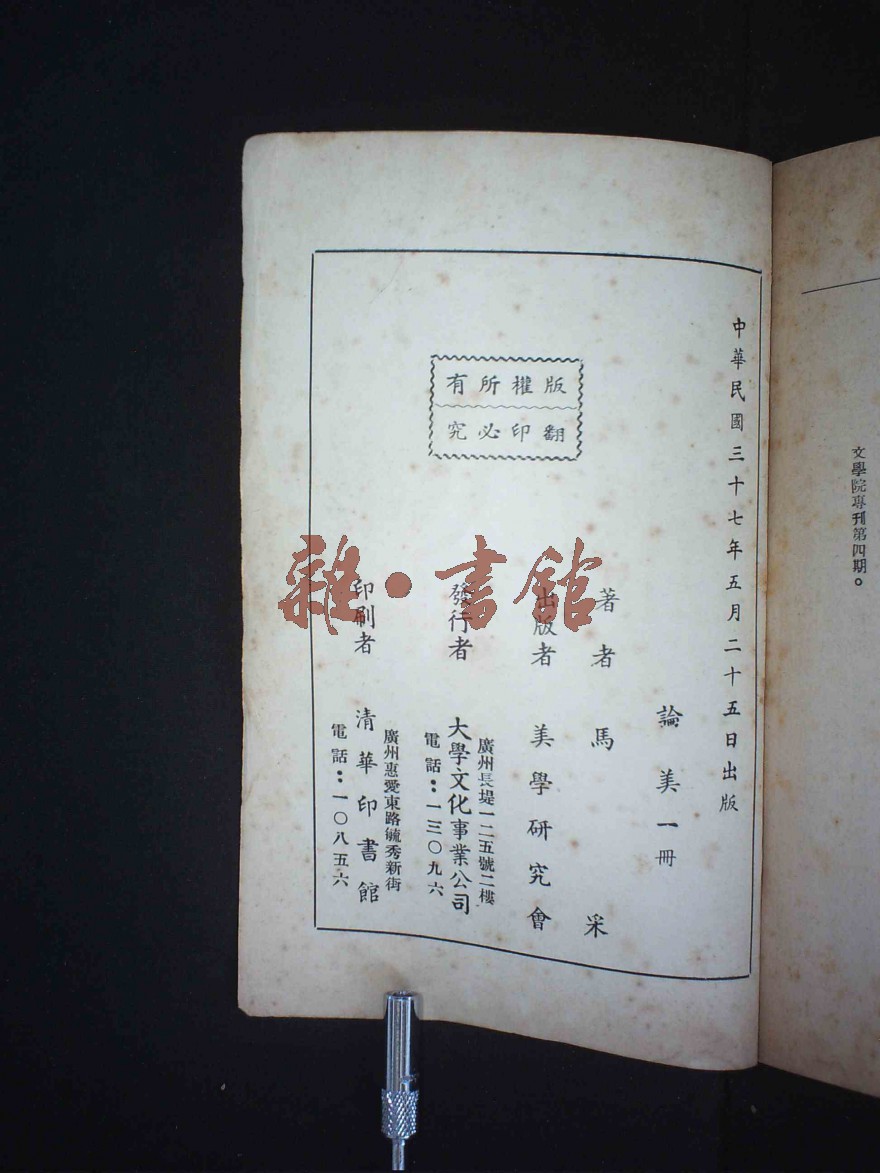 文學院專刊第四期。
中華民國三十七年五月二十五日出版
論美一冊
著者 馬采
出版者 美學研究會
發行者 大學文化事業公司
廣州長堤一二五號二樓
電話：一三〇九六
印刷者 清華印書館
廣州惠愛東路毓秀新街
電話：一〇八五六
版權所有
翻印必究
雜·書館